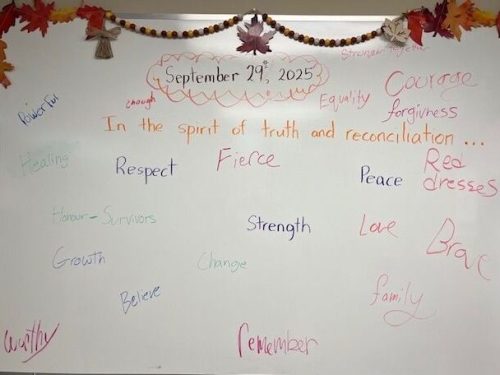 Stronger together
September 29th, 2025
Courage
Powerful
enough
Equality
forgivness
In the spirit of truth and reconciliation ...
Healing
Respect
Fierce
Peace
Red
dresses
Honour - Survivors
Strength
Love
Brave
Growth
Change
Believe
family
worthy
remember